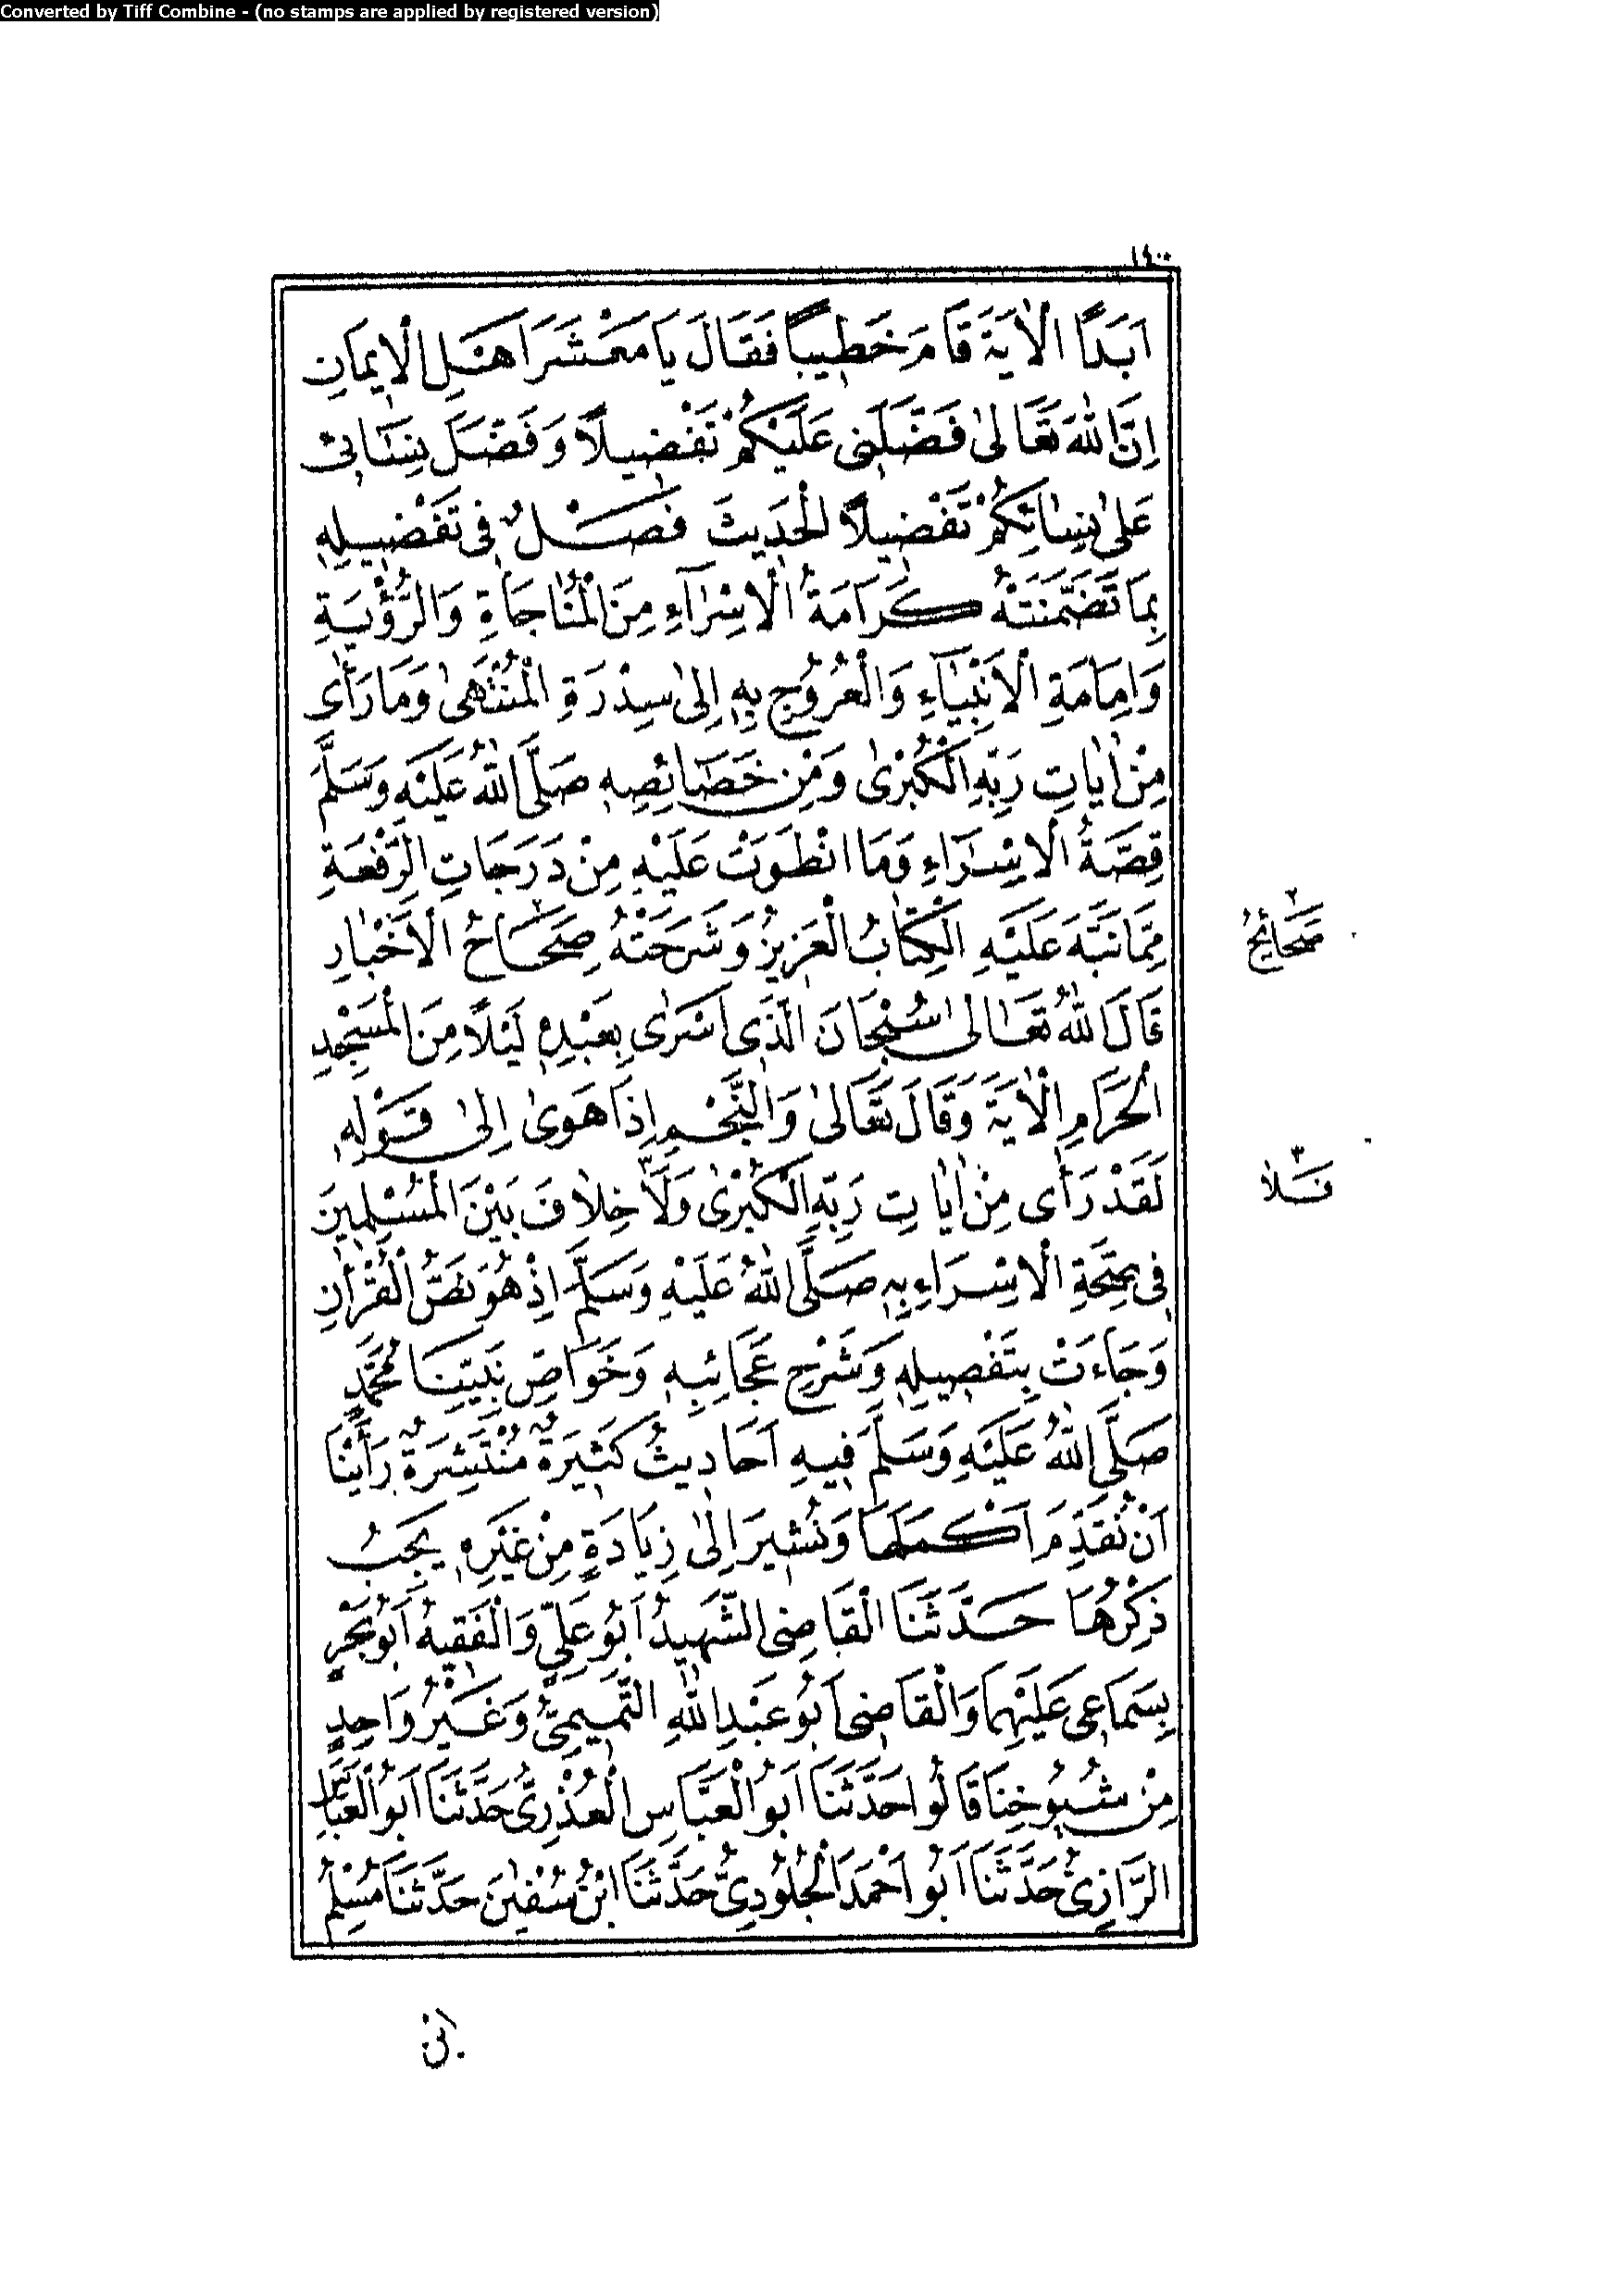 Converted by Tiff Combine - (no stamps are applied by registered version)
١٤٠
اَبَدًا الْاٰيَةَ قَامَ خَطِيبًا فَقَالَ يَا مَعْشَرَ اَهْلِ الْاِيمَانِ
اِنَّ اللهَ تَعَالىٰ فَضَّلَنِى عَلَيْكُمْ تَفْضِيلًا وَفَضَّلَ نِسَائِى
عَلىٰ نِسَائِكُمْ تَفْضِيلًا الْحَدِيثَ فَصْلٌ فِى تَفْضِيلِهِ
بِمَا تَضَمَّنَتْهُ كَرَامَةُ الْاِسْرَآءِ مِنَ الْمُنَاجَاةِ وَالرُّؤْيَةِ
وَاِمَامَةِ الْاَنْبِيَآءِ وَالْعُرُوجِ بِهِ اِلىٰ سِدْرَةِ الْمُنْتَهىٰ وَمَا رَأٰى
مِنْ اٰيَاتِ رَبِّهِ الْكُبْرىٰ وَمِنْ خَصَآئِصِهِ صَلَّى اللهُ عَلَيْهِ وَسَلَّمَ
قِصَّةُ الْاِسْرَاءِ وَمَا انْطَوَتْ عَلَيْهِ مِنْ دَرَجَاتِ الرِّفْعَةِ
مِمَّا نَبَّهَ عَلَيْهِ الْكِتَابُ الْعَزِيزُ وَشَرَحَتْهُ صِحَاحُ الْاَخْبَارِ
٢ صَحَائِحُ
قَالَ اللهُ تَعَالىٰ سُبْحَانَ الَّذِى اَسْرٰى بِعَبْدِهِ لَيْلًا مِنَ الْمَسْجِدِ
الْحَرَامِ الْاٰيَةَ وَقَالَ تَعَالىٰ وَالنَّجْمِ اِذَا هَوىٰ اِلىٰ قَوْلِهِ
لَقَدْ رَأٰى مِنْ اٰيَاتِ رَبِّهِ الْكُبْرىٰ وَلَا خِلَافَ بَيْنَ الْمُسْلِمِينَ
٣ فَلَا
فِى صِحَّةِ الْاِسْرَاءِ بِهِ صَلَّى اللهُ عَلَيْهِ وَسَلَّمَ اِذْ هُوَ نَصُّ الْقُرْاٰنِ
وَجَاءَتْ بِتَفْصِيلِهِ وَشَرْحِ عَجَائِبِهِ وَخَوَاصِّ نَبِيِّنَا مُحَمَّدٍ
صَلَّى اللهُ عَلَيْهِ وَسَلَّمَ فِيهِ اَحَادِيثُ كَثِيرَةٌ مُنْتَشِرَةٌ رَأَيْنَا
اَنْ نُقَدِّمَ اَكْمَلَهَا وَنُشِيرَ اِلىٰ زِيَادَةٍ مِنْ غَيْرِهِ يَجِبُ
ذِكْرُهَا حَدَّثَنَا الْقَاضِى الشَّهِيدُ اَبُو عَلِيٍّ وَالْفَقِيهُ اَبُو بَحْرٍ
بِسَمَاعِى عَلَيْهِمَا وَالْقَاضِى اَبُو عَبْدِ اللهِ التَّمِيمِىُّ وَغَيْرُ وَاحِدٍ
مِنْ شُيُوخِنَا قَالُوا حَدَّثَنَا اَبُو الْعَبَّاسِ الْعُذْرِىُّ حَدَّثَنَا اَبُو الْعَبَّاسِ
الرَّازِىُّ حَدَّثَنَا اَبُو اَحْمَدَ الْجُلُودِىُّ حَدَّثَنَا ابْنُ سُفْيٰنَ حَدَّثَنَا مُسْلِمُ